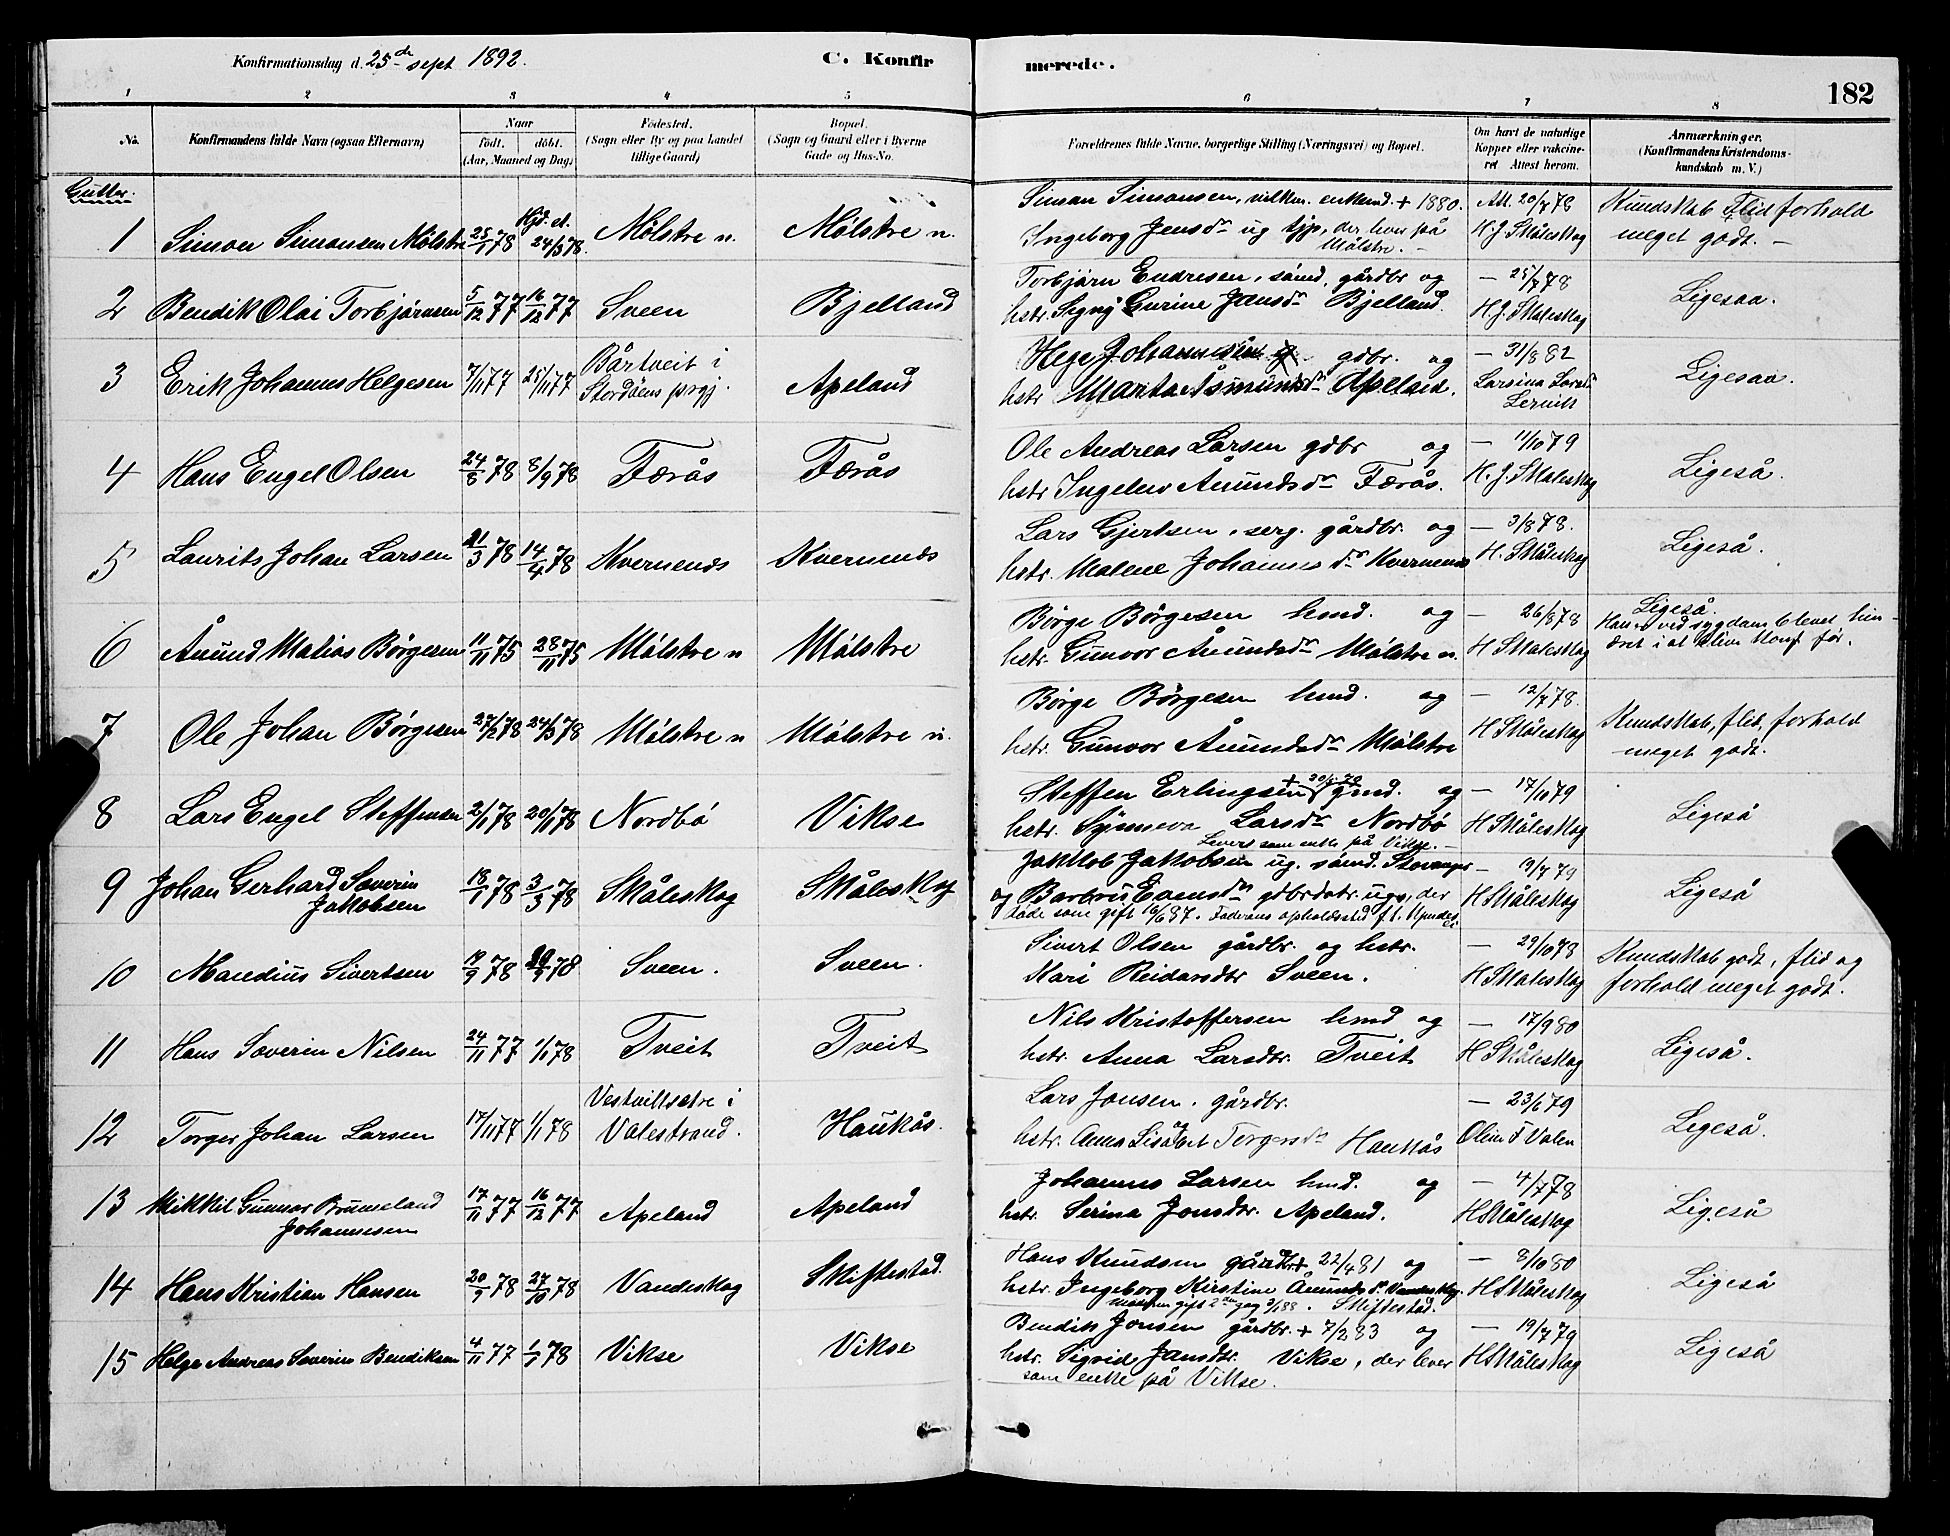 Konfirmationsdag d. 25de sept 1892.
C. Konfirmerede.
182
1 2 3 4 5 6 7 8
No. Konfirmandens fulde Navn (ogsaa Efternavn) Naar født. døbt. (Aar, Maaned og Dag) Fødested. (Sogn eller By og paa Landet tillige Gaard) Bopæl. (Sogn og Gaard eller i Byerne Gade og Hus-No. Forældrenes fulde Navne, borgerlige Stilling (Næringsvei) og Bopæl. Om havt de naturlige Kopper eller vakcineret Attest herom. Anmærkninger. (Konfirmandens Kristendomskundskab m. V.)
Gutter.
1 Simon Simonsen Mølstre 25/1 78 Hjd. et. 24/3 78. Mølstre n. Mølstre n. Simon Simonsen, enkemd. + 1880. Att. 20/7 78 Kundskab Flid forhold
Ingeborg Jensdr ug tjp, der bor på Mølstre. - H. J. Måleskog meget godt. -
2 Bendik Olai Torbjørnsen 5/12 77 16/12 77 Sveen Bjelland Torbjørn Endresen, sømd, gårdbr og - 25/7 78 Ligesaa.
hstr. Signy Gurine Jansdr Bjelland. H. J. Måleskog
3 Erik Johannes Helgesen 7/11 77 25/11 77 Bårtveit i Stordøens prgj. Apeland Helge Johannesen gdbr. og - 31/8 82 Ligesaa.
hstr Marita Åsmundsdr Apeland. Larsina Larsdr Lervik
4 Hans Engel Olsen 24/8 78 8/9 78 Færås Færås Ole Andreas Larsen gdbr og - 11/10 79 Ligeså.
hstr Ingelev Åmundsdr Færås. H. J. Måleskog
5 Laurits Johan Larsen 21/3 78 14/4 78 Kvernenes Kvernenes Lars Gjertsen, serg. gårdbr. og - 3/8 78. Ligeså.
hstr. Malene Johannesdr Kvernenes H. Måleskog
6 Åmund Matias Børgesen 11/11 75 28/11 75 Mølstre n Mølstre Børge Børgesen hmd. og - 26/8 78 Ligeså.
hstr. Gunvor Åmundsdr Mølstre n. H Måleskog Han er ved sygdom blevet hindret i at blive konf før.
7 Ole Johan Børgesen 27/2 78 24/3 78 Mølstre n Mølstre n. Børge Børgesen hmd. og - 12/7 78. Kundskab, flid, forhold
hstr. Gunvor Åmundsdr Mølstre H Måleskog meget godt.
8 Lars Engel Steffensen 2/1 78 20/1 78 Nordbø Vikse Steffen Erlingsen + gmd. og - 17/10 79 Ligeså
hstr. Synneva Larsdr Nordbø H Måleskog
Lever som enke på Vikse. -
9 Johan Gerhard Severin Jakobsen 18/1 78 3/3 78 Måleskog Måleskog Jakob Jakobsen ug. sømd. Stavanger - 19/7 79 Ligeså
og Barbru Evensdr gdbrdatr. ug, der H Måleskog
døde som gift 10/6 87. Faderens opholdssted f. t.
10 Mandius Sivertsen 14/9 78 78 Sveen. Sveen. Sivert Olsen gårdbr. og hstr. - 29/10 78 Kundskab godt, flid og
Kari Reidarsdtr Sveen. H Måleskog forhold meget godt.
11 Hans Severin Nilsen 24/11 77 1/1 78 Tveit Tveit Nils Kristoffersen hmd og - 17/9 80 Ligeså.
hstr. Anna Larsdtr. Tveit H Måleskog
12 Torger Johan Larsen 17/11 77 1/1 78 Vestvikssætre i Valestrand. Haukås. Lars Jonsen. gårdbr. - 23/6 79 Ligeså.
hstr. Anna Lisabet Torgersdr Haukås Oline T Valen
13 Mikkel Gunnar Brumeland Johannesen 14/11 77 16/12 77 Apeland Apeland Johannes Larsen hmd. og - 4/7 78 Ligeså
hstr. Serina Jonsdtr. Apeland. H Måleskog
14 Hans Kristian Hansen 20/9 78 27/10 78 Vandeskog Skiftestad. Hans Knudsen gårdbr + 22/4 81 og - 8/10 80 Ligeså
hstr. Ingeborg Kirstine Åmundsdr Vandeskog. H Måleskog
Moderen gift 2den gang 88. Skiftestad.
15 Helge Andreas Severin Bendiksen 4/11 77 1/1 78 Vikse Vikse Bendik Jonsen gårdbr. + 7/2 83 og - 19/7 79 Ligeså
hstr. Sigrid Jansdtr. Vikse, der lever H Måleskog
som enke på Vikse.